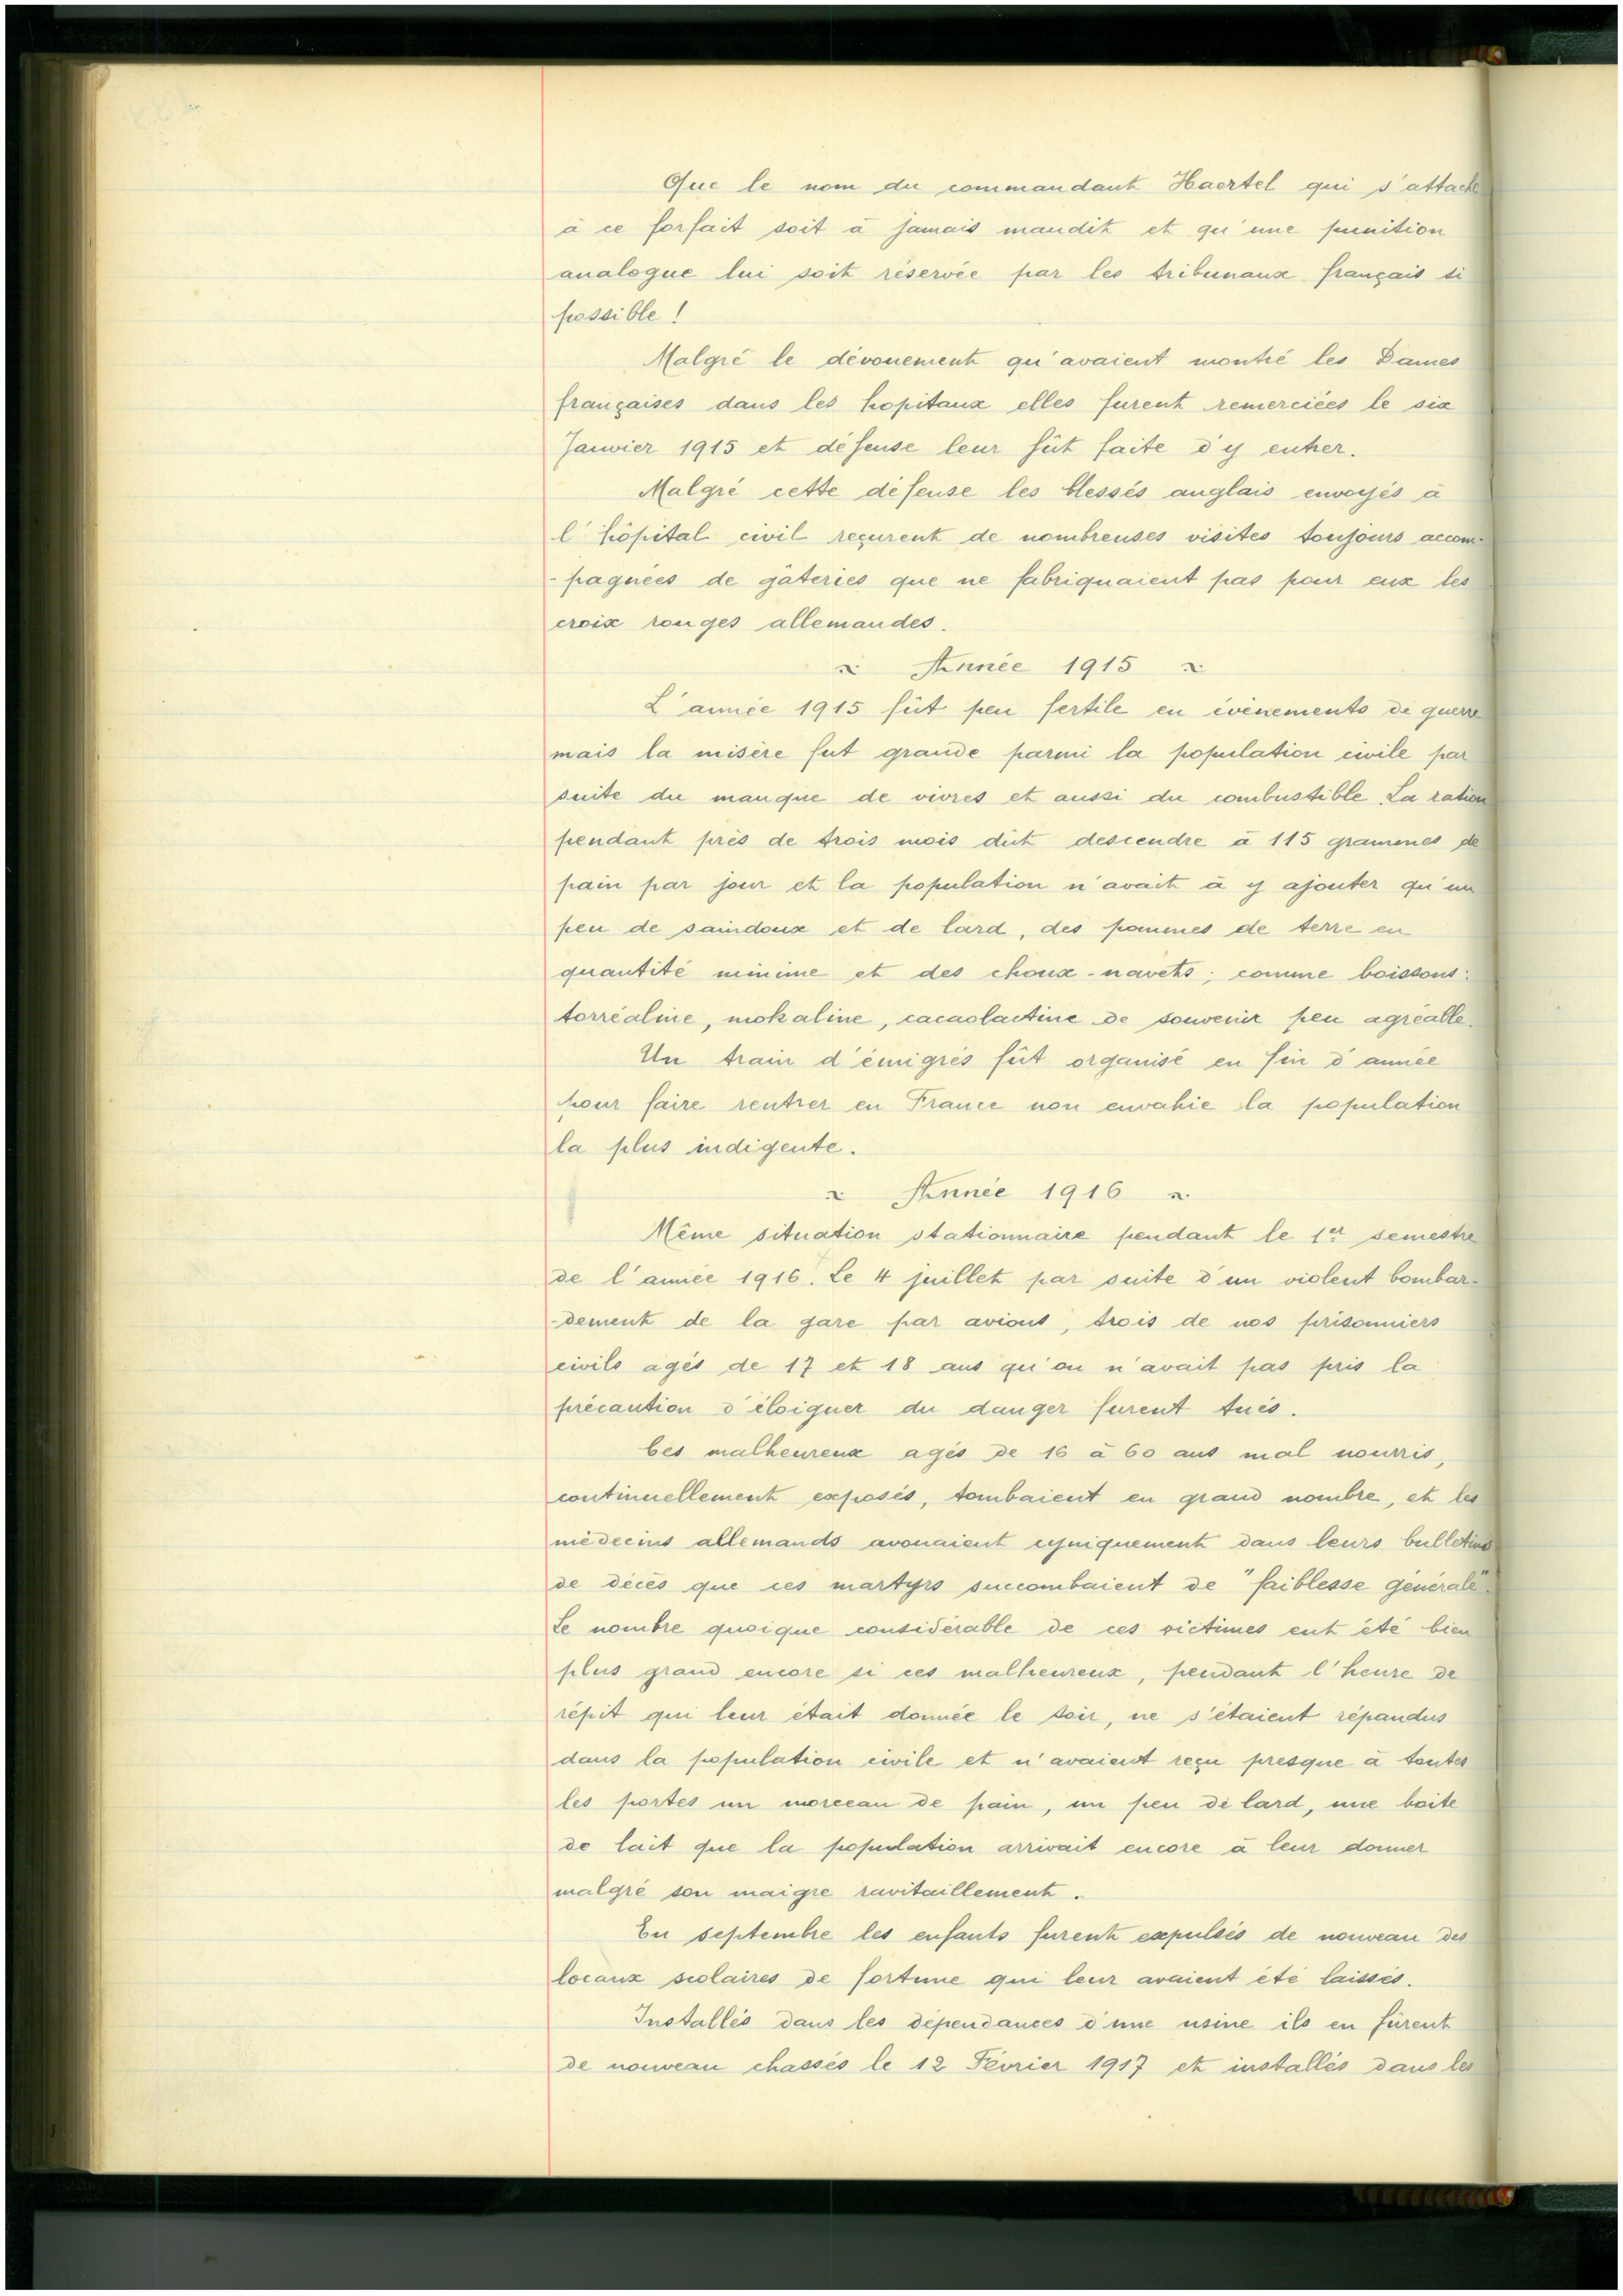 Que le nom du commandant Haertel qui s'attache
à ce forfait soit à jamais maudit et qu'une punition
analogue lui soit réservée par les tribunaux français si
possible !
Malgré le dévouement qu'avaient montré les Dames
françaises dans les hopitaux elles furent remerciées le six
Janvier 1915 et défense leur fût faite d'y entrer.
Malgré cette défense les blessés anglais envoyés à
l'hôpital civil reçurent de nombreuses visites toujours accom-
-pagnées de gâteries que ne fabriquaient pas pour eux les
croix rouges allemandes.
Année 1915
L'année 1915 fût peu fertile en évènements de guerre
mais la misère fut grande parmi la population civile par
suite du manque de vivres et aussi du combustible. La ration
pendant près de trois mois dût descendre à 115 grammes de
pain par jour et la population n'avait à y ajouter qu'un
peu de saindoux et de lard, des pommes de terre en
quantité minime et des choux-navets ; comme boissons :
torréaline, mokaline, cacaolactine de souvenir peu agréable.
Un train d'émigrés fût organisé en fin d'année
pour faire rentrer en France non envahie la population
la plus indigente.
Année 1916
Même situation stationnaire pendant le 1er semestre
de l'année 1916. Le 4 juillet par suite d'un violent bombar-
-dement de la gare par avions, trois de nos prisonniers
civils agés de 17 et 18 ans qu'on n'avait pas pris la
précaution d'éloigner du danger furent tués.
Ces malheureux agés de 16 à 60 ans mal nourris,
continuellement exposés, tombaient en grand nombre, et les
médecins allemands avouaient cyniquement dans leurs bulletins
de décès que ces martyrs succombaient de "faiblesse générale".
Le nombre quoique considérable de ces victimes eut été bien
plus grand encore si ces malheureux, pendant l'heure de
répit qui leur était donnée le soir, ne s'étaient répandus
dans la population civile et n'avaient reçu presque à toutes
les portes un morceau de pain, un peu de lard, une boite
de lait que la population arrivait encore à leur donner
malgré son maigre ravitaillement.
En septembre les enfants furent expulsés de nouveau des
locaux scolaires de fortune qui leur avaient été laissés.
Installés dans les dépendances d'une usine ils en fûrent
de nouveau chassés le 12 Février 1917 et installés dans les